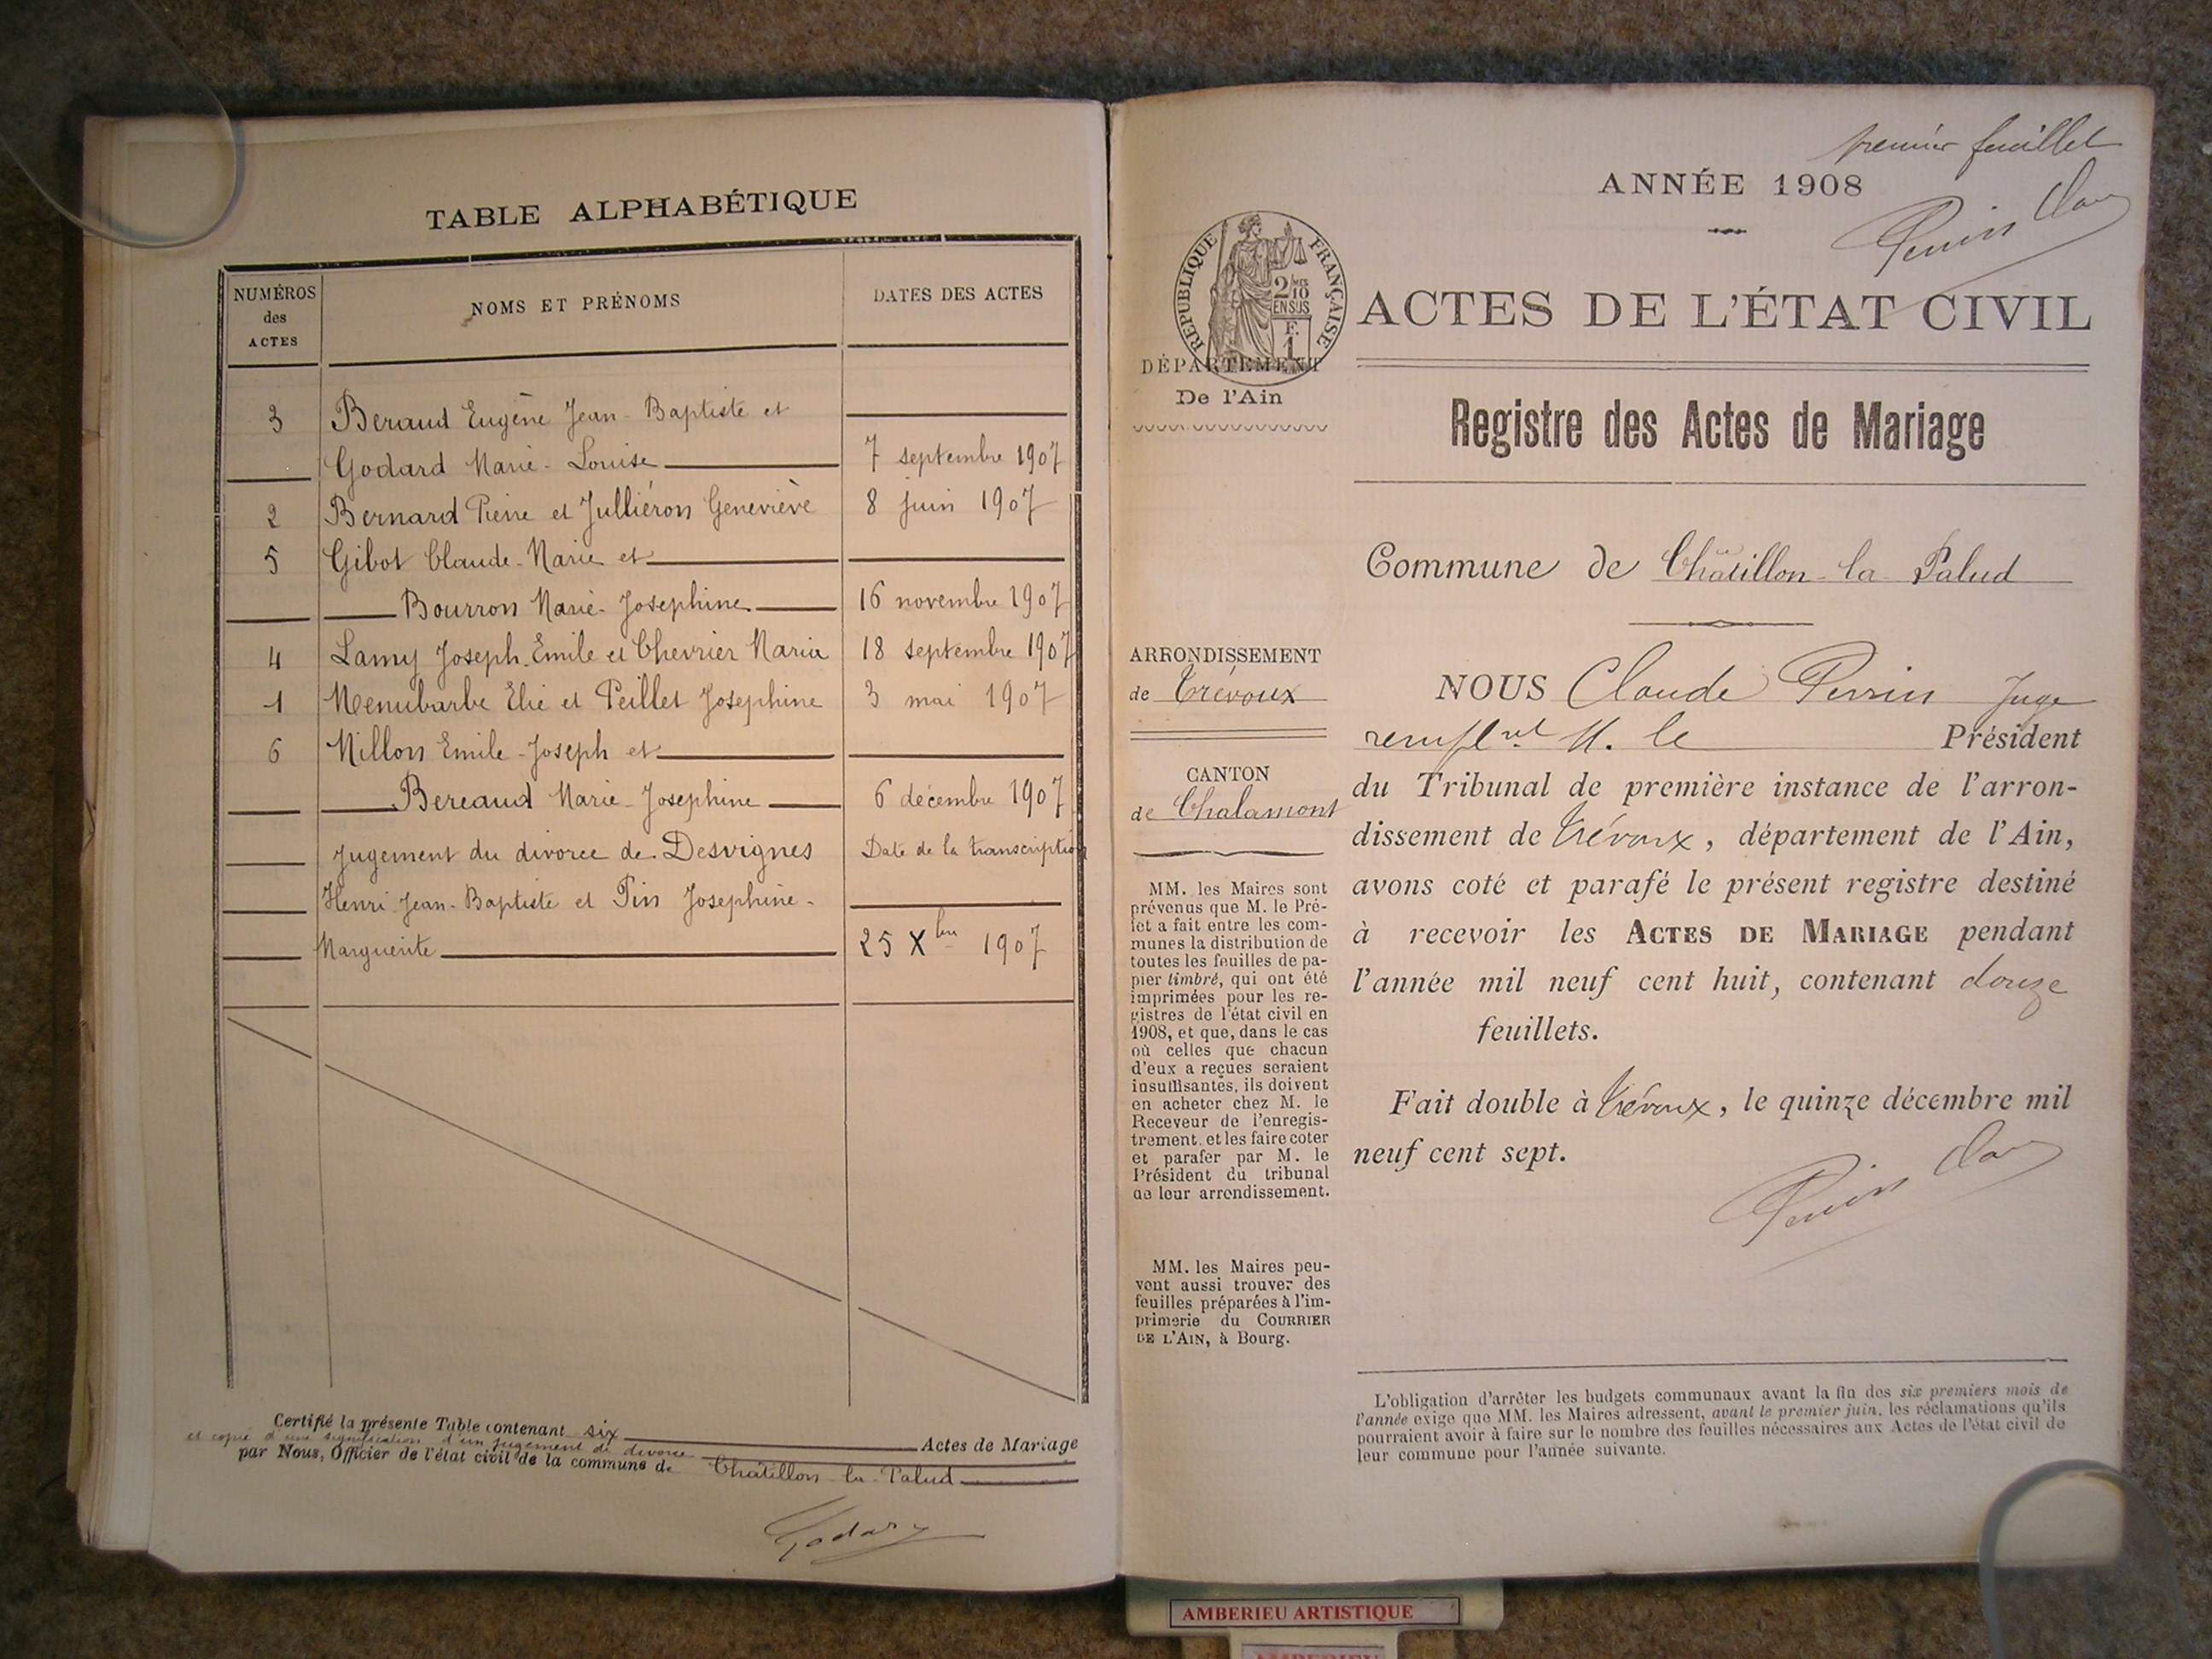 TABLE ALPHABÉTIQUE
NUMÉROS
des
ACTES
NOMS ET PRÉNOMS
DATES DES ACTES
3 Beraud Eugène Jean-Baptiste et
Godard Marie-Louise 7 septembre 1907
2 Bernard Pierre et Julliéron Geneviève 8 juin 1907
5 Gibot Claude-Marie et
Bourron Marie-Josephine 16 novembre 1907
4 Lamy Joseph-Emile et Chevrier Maria 18 septembre 1907
1 Menubarbe Elie et Peillet Josephine 3 mai 1907
6 Millon Emile-Joseph et
Bereaud Marie-Josephine 6 décembre 1907
Jugement du divorce de Desvignes Date de la transcription
Henri-Jean-Baptiste et Pin Josephine-
Marguerite 25 Xbre 1907
Certifié la présente Table contenant six Actes de Mariage
et copie d'une signification d'un jugement de divorce
par Nous, Officier de l'état civil de la commune de Châtillon-la-Palud
Godard
premier feuillet
ANNÉE 1908
Perrin Clau
RÉPUBLIQUE FRANÇAISE
2/10
EN SUS
F.
1
ACTES DE L'ÉTAT CIVIL
DÉPARTEMENT
De l'Ain
Registre des Actes de Mariage
Commune de Châtillon-la-Palud
ARRONDISSEMENT
de Trévoux
CANTON
de Chalamont
NOUS Claude Perrin Juge
rempl.nt M. le Président
du Tribunal de première instance de l'arron-
dissement de Trévoux, département de l'Ain,
avons coté et parafé le présent registre destiné
à recevoir les ACTES DE MARIAGE pendant
l'année mil neuf cent huit, contenant douze
feuillets.
Fait double à Trévoux, le quinze décembre mil
neuf cent sept.
Perrin Clau
MM. les Maires sont
prévenus que M. le Pré-
fet a fait entre les com-
munes la distribution de
toutes les feuilles de pa-
pier timbré, qui ont été
imprimées pour les re-
gistres de l'état civil en
1908, et que, dans le cas
où celles que chacun
d'eux a reçues seraient
insuffisantes, ils doivent
en acheter chez M. le
Receveur de l'enregis-
trement, et les faire coter
et parafer par M. le
Président du tribunal
de leur arrondissement.
MM. les Maires peu-
vent aussi trouver des
feuilles préparées à l'im-
primerie du COURRIER
DE L'AIN, à Bourg.
L'obligation d'arrêter les budgets communaux avant la fin des six premiers mois de
l'année exige que MM. les Maires adressent, avant le premier juin, les réclamations qu'ils
pourraient avoir à faire sur le nombre des feuilles nécessaires aux Actes de l'état civil de
leur commune pour l'année suivante.
AMBERIEU ARTISTIQUE
AMBERIEU